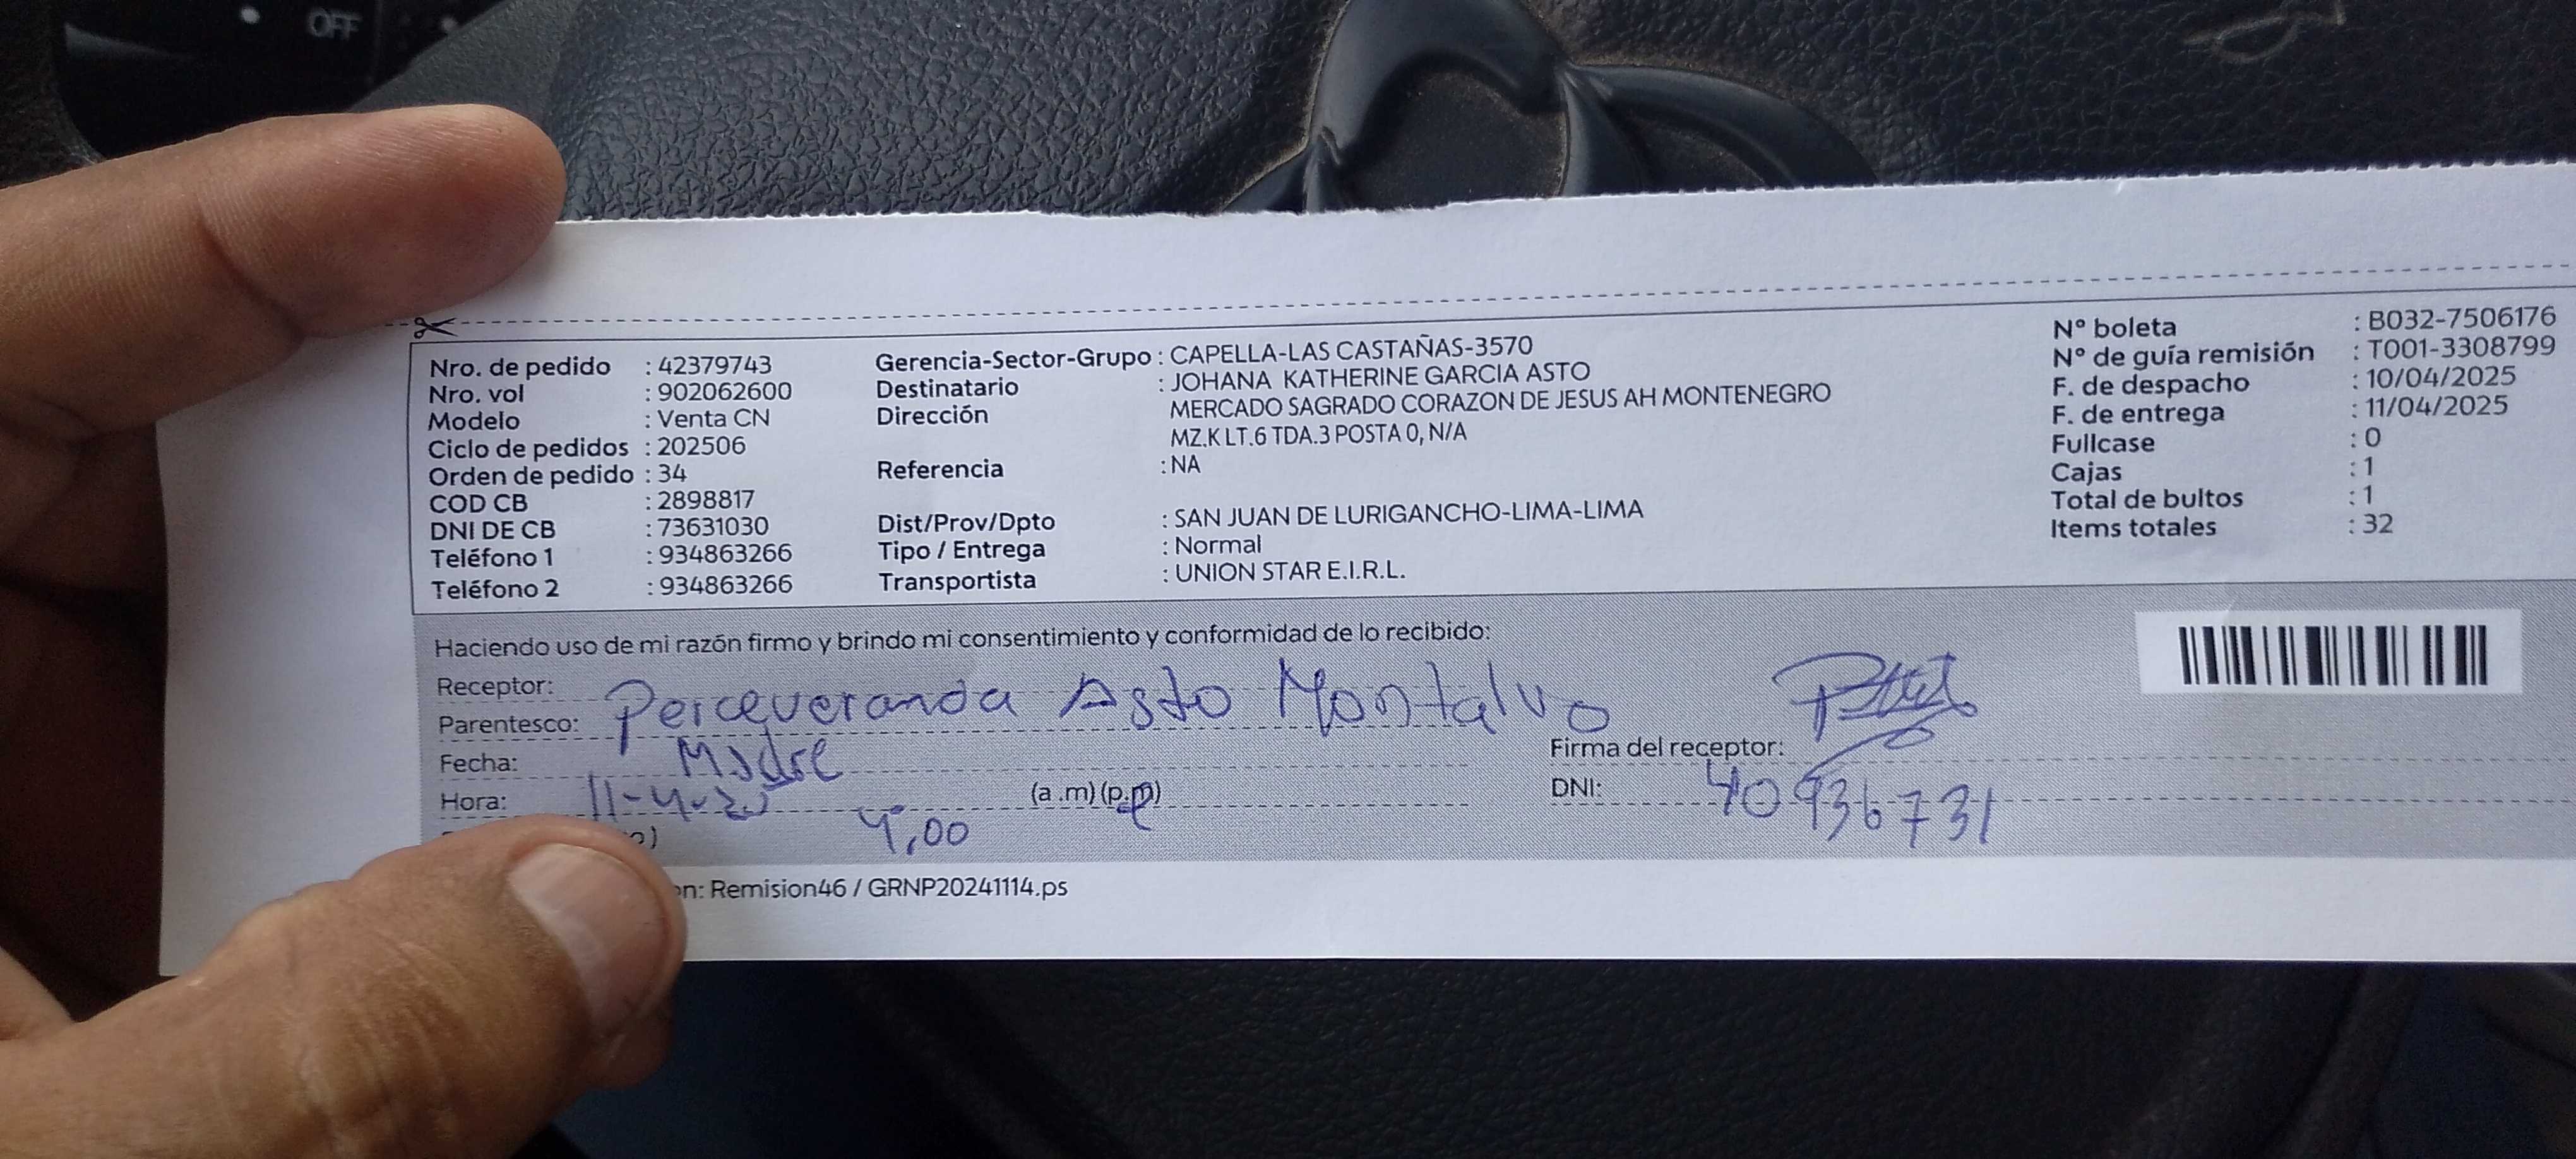 OFF
Nro. de pedido : 42379743
Nro. vol : 902062600
Modelo : Venta CN
Ciclo de pedidos : 202506
Orden de pedido : 34
COD CB : 2898817
DNI DE CB : 73631030
Teléfono 1 : 934863266
Teléfono 2 : 934863266
Gerencia-Sector-Grupo : CAPELLA-LAS CASTAÑAS-3570
Destinatario : JOHANA KATHERINE GARCIA ASTO
Dirección MERCADO SAGRADO CORAZON DE JESUS AH MONTENEGRO
MZ.K LT.6 TDA.3 POSTA 0, N/A
Referencia : NA
Dist/Prov/Dpto : SAN JUAN DE LURIGANCHO-LIMA-LIMA
Tipo / Entrega : Normal
Transportista : UNION STAR E.I.R.L.
N° boleta : B032-7506176
N° de guía remisión : T001-3308799
F. de despacho : 10/04/2025
F. de entrega : 11/04/2025
Fullcase : 0
Cajas : 1
Total de bultos : 1
Items totales : 32
Haciendo uso de mi razón firmo y brindo mi consentimiento y conformidad de lo recibido:
Receptor: Perceveranda Asto Montalvo
Parentesco: Madre
Fecha: 11-4-25
Hora: 4,00 (a .m) (p.m)
Firma del receptor:
DNI: 40936731
Remision46 / GRNP20241114.ps